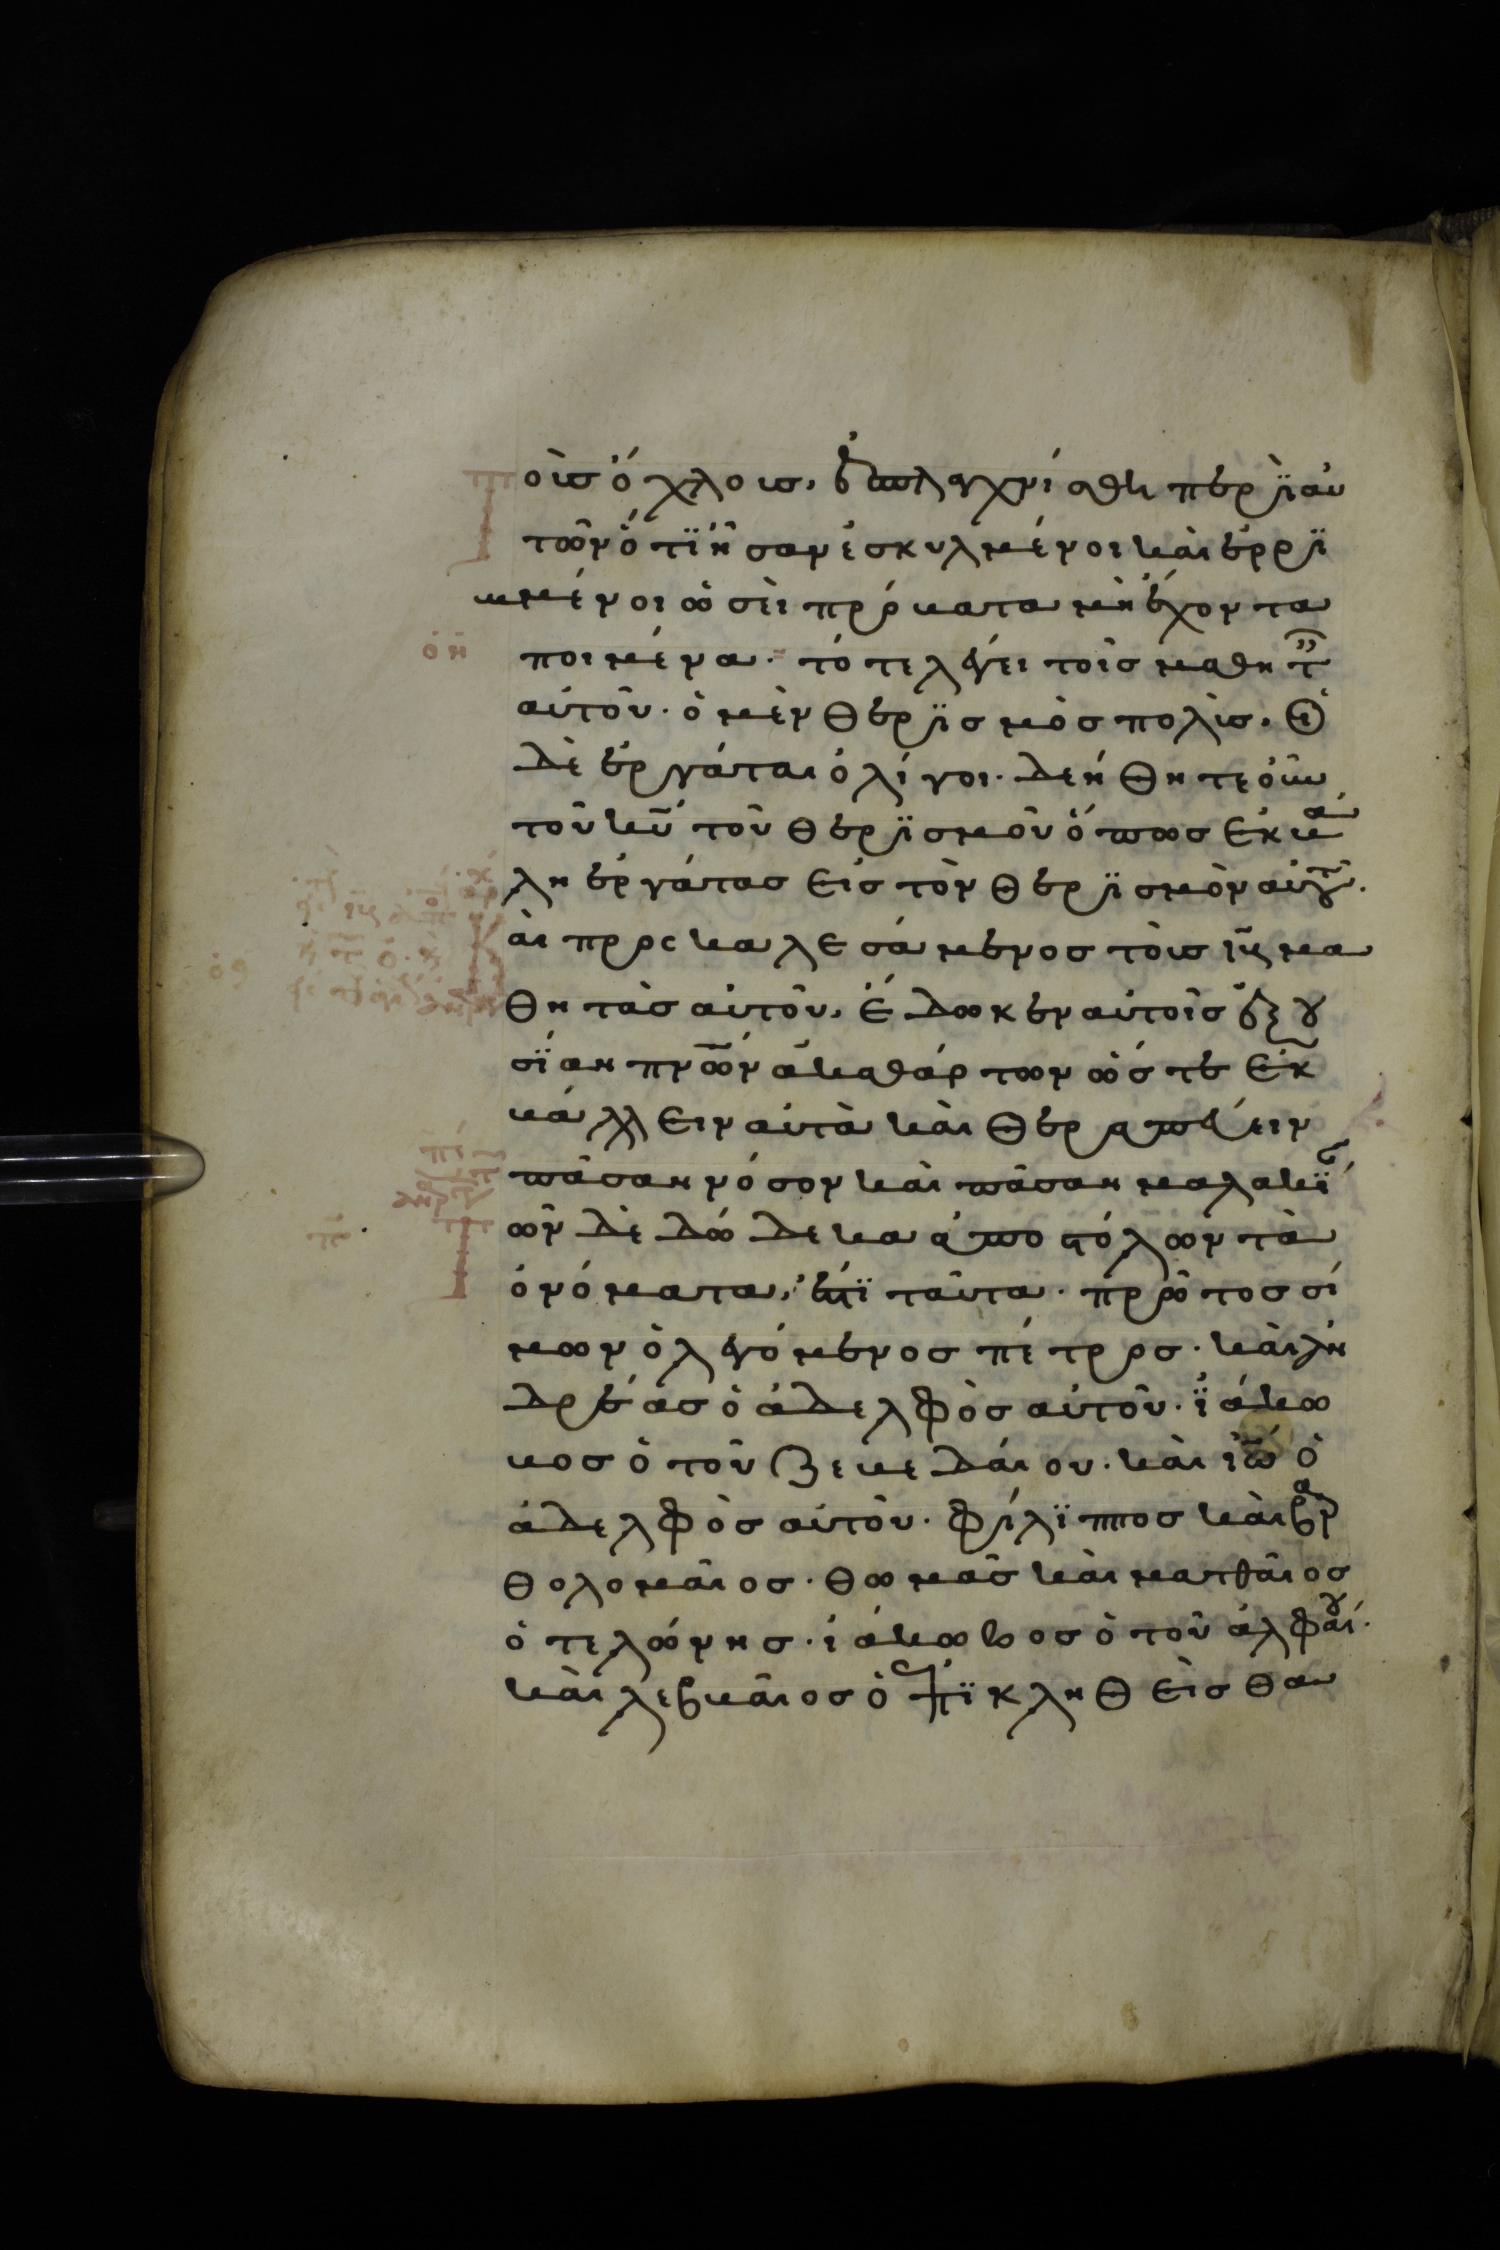 οὺσ ὄχλουσ, ἐσπλαγχνίσθη περὶ αυ
τῶν ὅτι ἦσαν ἐσκυλμένοι καὶ ἐρρι
μμένοι ὡσεὶ πρόβατα μὴ ἔχοντα
ποιμένα. τότε λέγει τοῖσ μαθητ
αὐτοῦ. ὁ μὲν θερισμὸσ πολὺσ. οἱ
δὲ ἐργάται ὀλίγοι. δεήθητε οὖν
τοῦ κυ τοῦ θερισμοῦ ὅπωσ ἐκβά
λη ἐργάτασ εἰσ τὸν θερισμὸν αὐτου.
αι προσκαλεσάμενοσ τοὺσ ιβ μα
θητὰσ αὐτοῦ, ἔδωκεν αὐτοῖσ ἐξου
σίαν πνων ἀκαθάρτων ὥστε ἐκ
βάλλειν αὐτὰ καὶ θεραπεύειν
πᾶσαν νόσον καὶ πᾶσαν μαλακίαν
ων δὲ δώδεκα ἀποστόλων τὰ
ὀνόματα, ἐστὶ ταῦτα. πρῶτοσ σί
μων ὁ λεγόμενοσ πέτροσ. καὶ ἀν
δρέασ ὁ ἀδελφὸσ αὐτοῦ. ἰάκω
βοσ ὁ τοῦ ζεβεδαίου. καὶ ιω ὁ
ἀδελφὸσ αὐτοῦ. φίλιπποσ καὶ βαρ
θολομαῖοσ. θωμᾶσ καὶ ματθαῖοσ
ὁ τελώνησ. ἰάκωβοσ ὁ τοῦ ἀλφαίου.
καὶ λεββαῖοσ ὁ ἐπικληθεὶσ θα